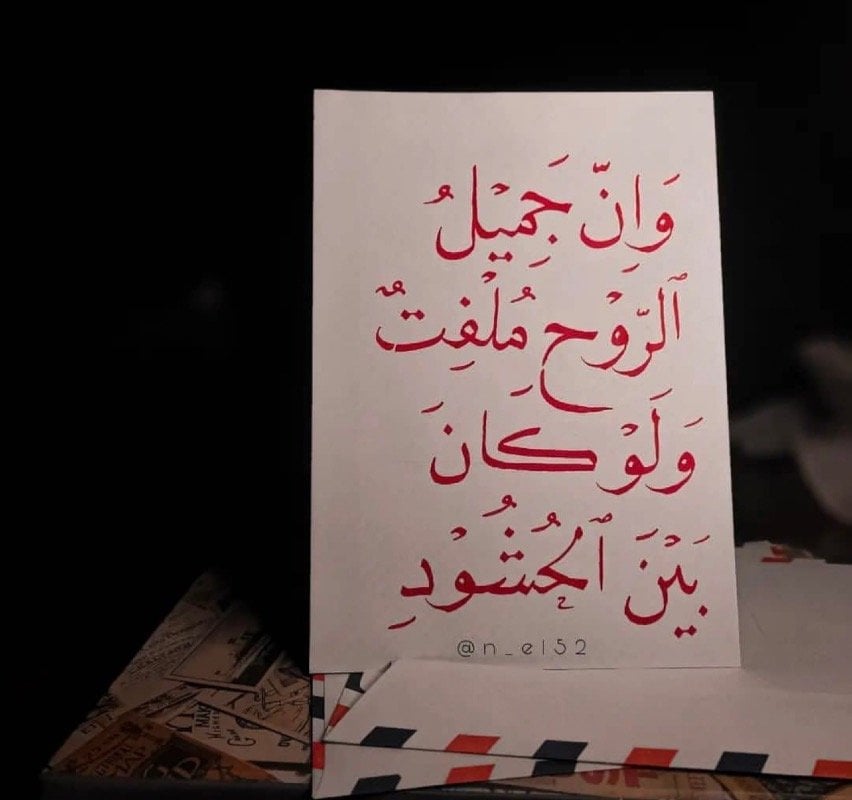 وَاِنّ جَمِيْلُ
ٱلرّوْحِ مُلْفِتٌ
وَلَوْ كانَ
بَيْنَ ٱلْحُشُوْدِ
@n_el52